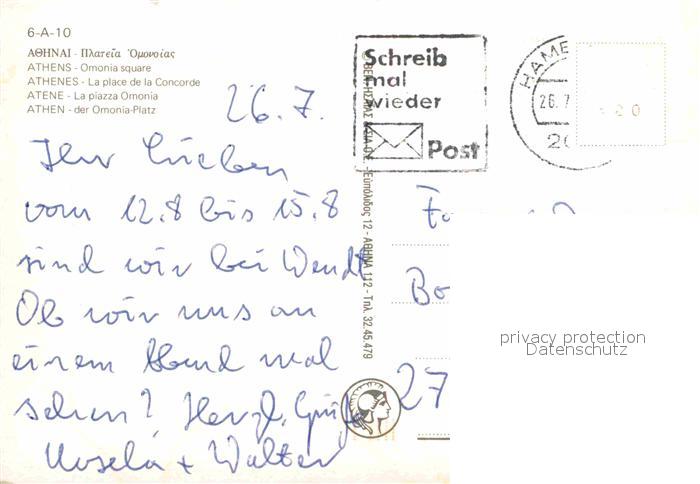 6-A-10
ΑΘΗΝΑΙ - Πλατεῖα Ὁμονοίας
ATHENS - Omonia square
ATHENES - La place de la Concorde
ATENE - La piazza Omonia
ATHEN - der Omonia-Platz
26.7.
Ihr Lieben
vom 12.8 bis 15.8
sind wir bei Wendt
Ob wir uns an
einem Abend mal
sehen? Herzl. Grüße
+ Walter
Schreib
mal
wieder
Post
HAME
26.7
20
Εὐπόλιδος 12 - ΑΘΗΝΑ 112 - Τηλ. 32.45.479
Bo
27
privacy protection
Datenschutz